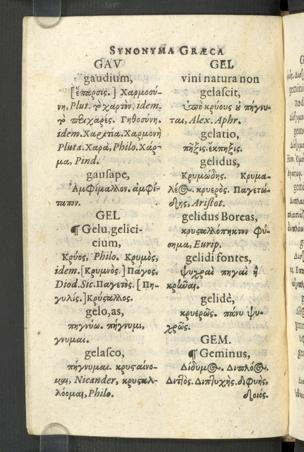 SYNONYMA GRÆCA
GAV
gaudium,
[ἔπαρσις.] Χαρμοσύ-
νη, Plut. τὸ χαρτὸν, idem.
τὸ περιχαρές. Γηθοσύνη.
idem. Χαρτία. Χαρμονὴ
Pluta. Χαρὰ, Philo. Χάρ-
μα, Pind.
gausape,
Ἀμφίμαλλον. ἀμφί-
ταπιν.
GEL
¶ Gelu, gelici-
cium,
Κρύος. Philo. Κρυμὸς,
idem. [Κρυμνὸς.] Πάγος.
Diod. Sic. Παγετὸς. [Πη-
γυλίς.] Κρύσταλλος.
gelo, as,
πηγνύω. πήγνυμι,
γνυμαι.
gelasco,
πήγνυμαι. κρυσταίνο-
μαι, Nicander, κρυσταλ-
λόομαι, Philo.
GEL
vini natura non
gelascit,
ὑπὸ κρύους οὐ πήγνυ-
ται, Alex. Aphr.
gelatio,
πῆξις. ἔκπηξις.
gelidus,
Κρυμώδης. Κρυμα-
λέος. κρυερὸς. Παγετώ-
δης, Aristot.
gelidus Boreas,
κρυσταλλόπηκτον φύ-
σημα, Eurip.
gelidi fontes,
ψυχραὶ πηγαὶ ἢ
κρῆναι.
gelidè,
κρυερῶς. πάνυ ψυ-
χρῶς.
GEM.
¶ Geminus,
Δίδυμος. Διπλόος.
Διττὸς. Δίπτυχὴς. διφυὴς,
δοιός.